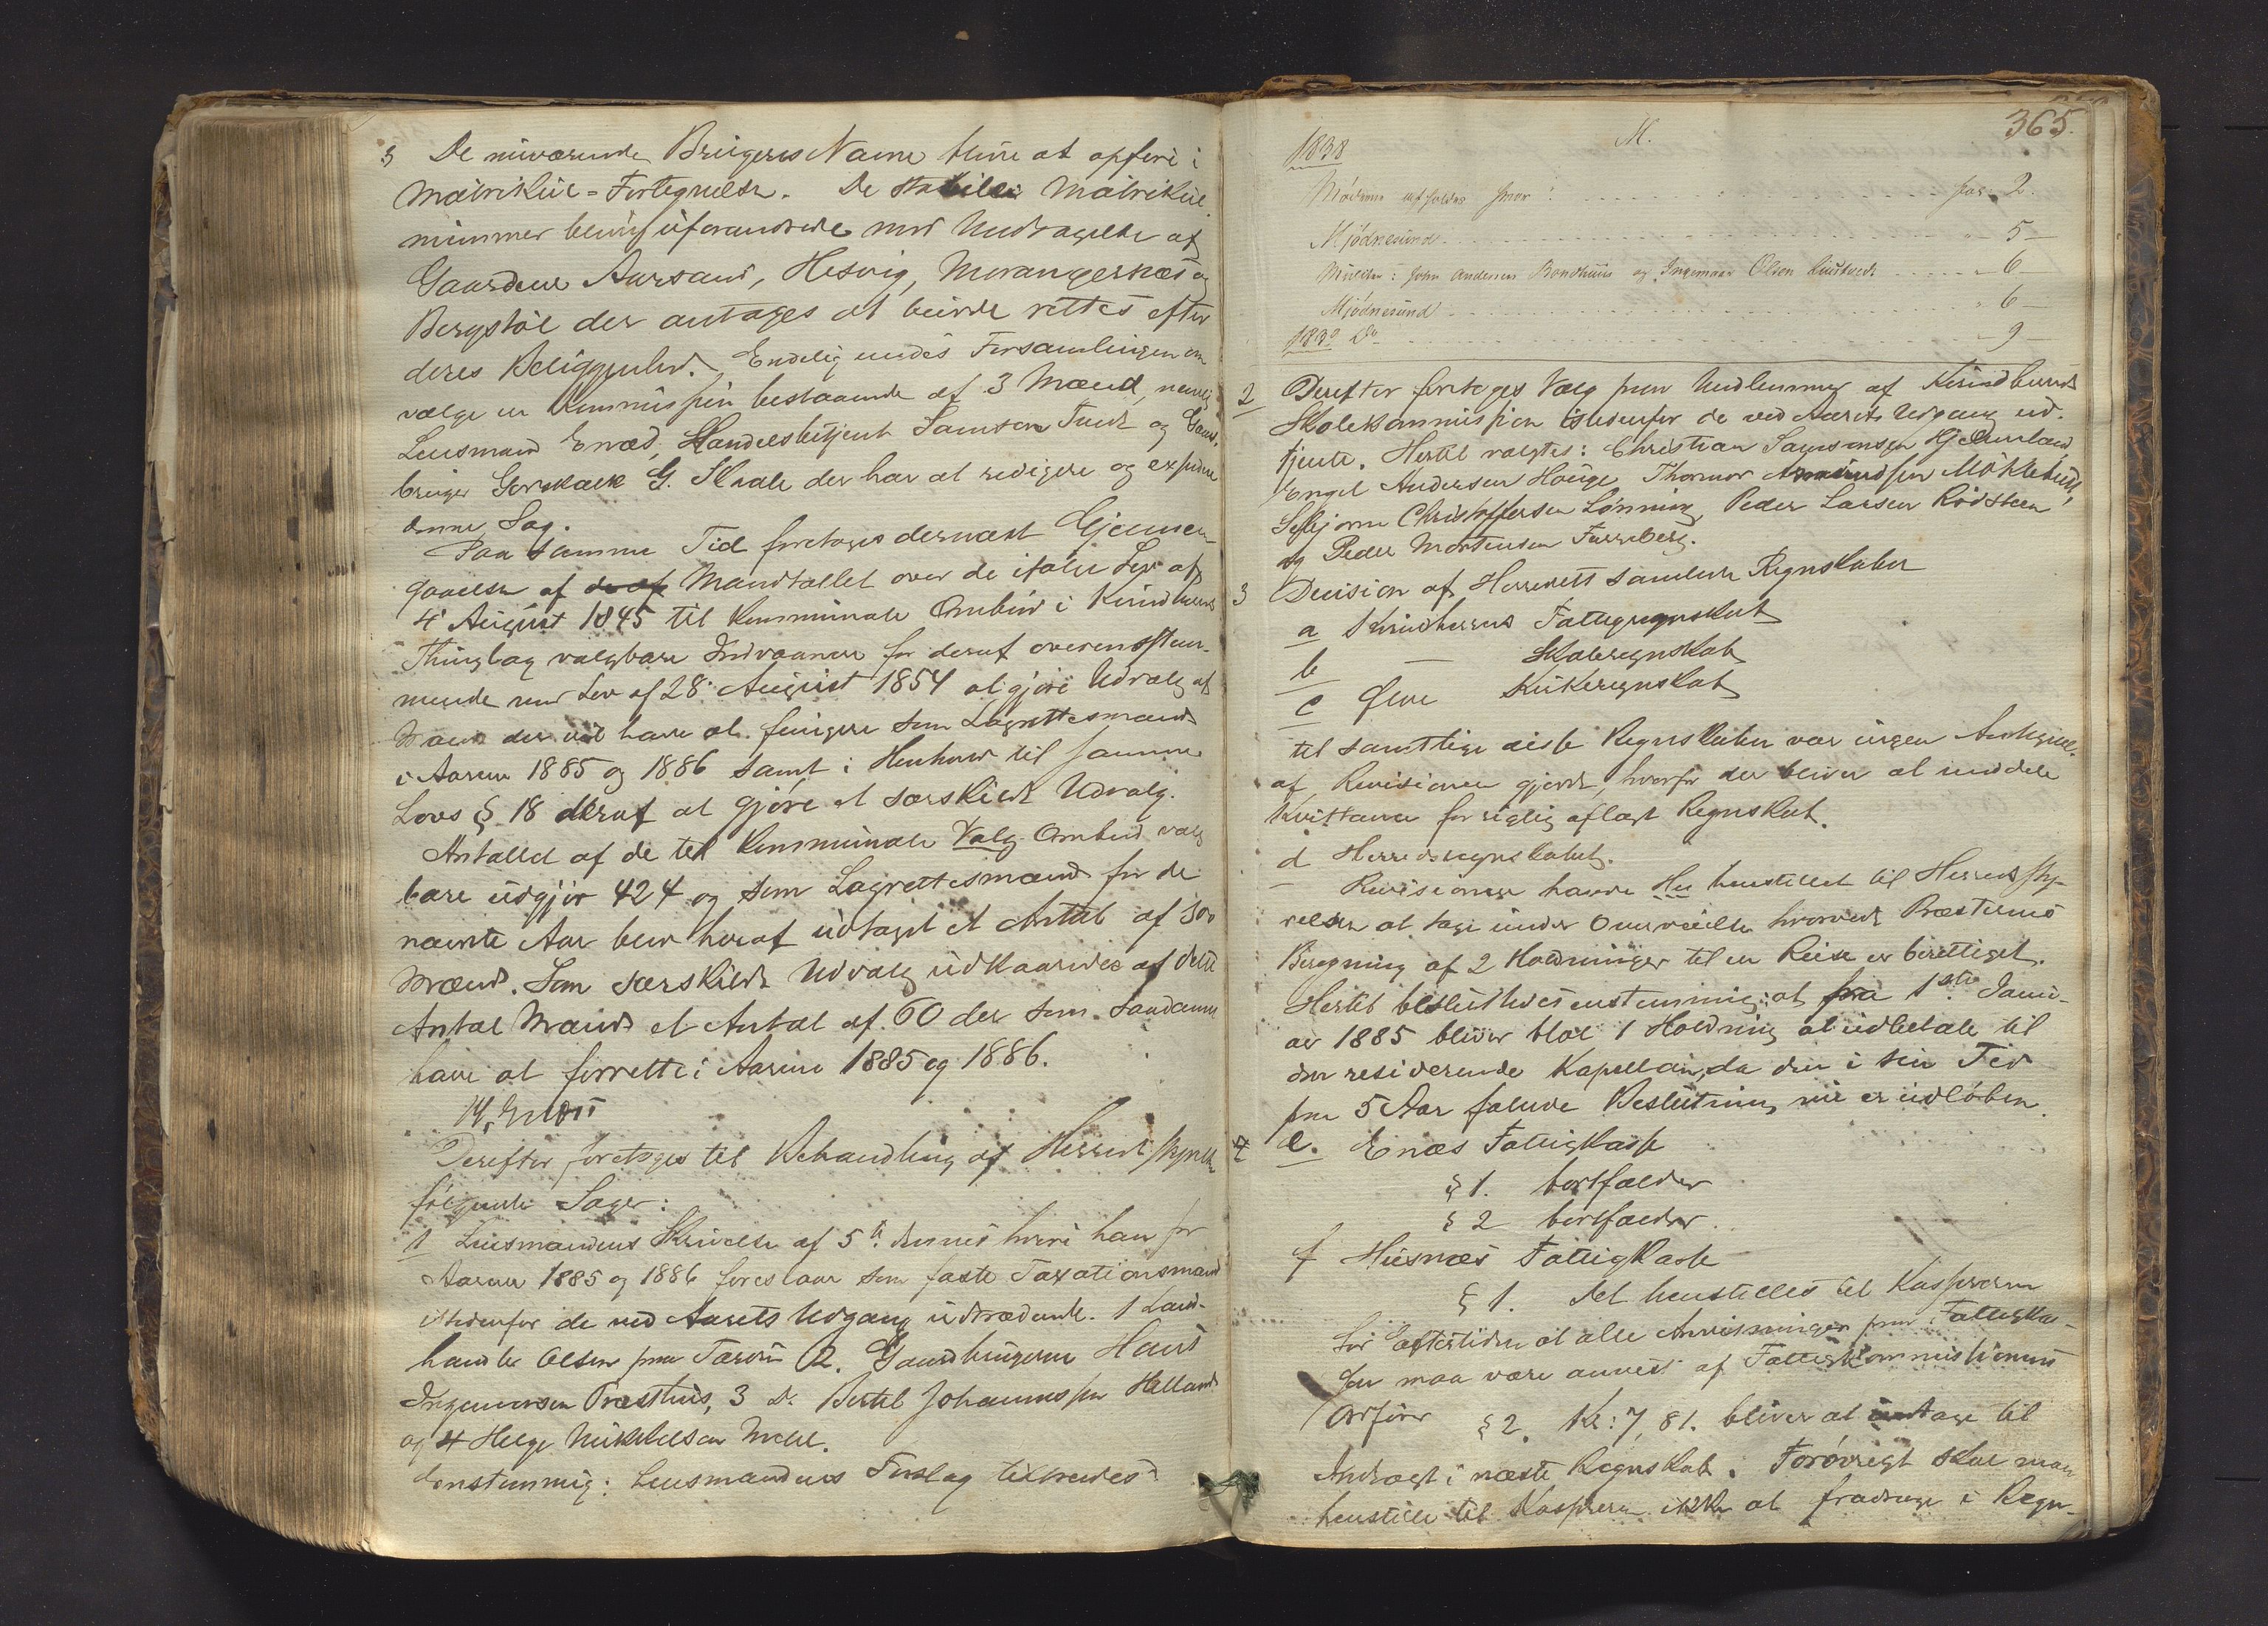 3 De nuværende Brugeres Navne blive at opføre i
Matrikul-Fortegnelse. De stabile Matrikul
nummer bliver uforandrede med Undtagelse af
Gaardene Aarsand, Hesvig, Morangernæs og
Bergstøl der antages at burde rettes efter
deres Beliggenhed. Endelig Forsamlingen
vælge en Kommission bestaaende af 3 Mænd, nemlig
Lensmand Enæs, Handelsbetjent Samson Tvedt og Gaard-
bruger G. Skaale der har at redigere og expedere
denne Sag.
Paa samme Tid foretages dernæst Gjennem-
gaaelse af Mandtallet over de ifølge Lov af
4 August 1845 til kommunale Ombud i Kvindherred
Thinglag valgbare Indvaanere for deraf overensstem-
mende med Lov af 28 August 1854 at gjøre Udvalg af
Mænd der vil have at fungere som Lagrettesmænd
i Aarene 1885 og 1886 samt i Henhold til samme
Lovs § 18 deraf at gjøre et særskildt Udvalg.
Antallet af de til kommunale Valg Ombud valg
bare udgjør 424 og som Lagrettesmænd for de
nævnte Aar blev heraf udtaget et Antal af 300
Mænd. Som særskildt Udvalg udkaaredes af dette
Antal Mænd et Antal af 60 der som saadanne
have at forrette i Aarene 1885 og 1886.
Derefter foretoges til Behandling af Herredsstyrelsen
følgende Sager:
1 Lensmandens Skrivelse af 5te dennes hvori han for
Aarene 1885 og 1886 foreslaar som faste Taxationsmænd
istedenfor de ved Aarets Udgang udtrædende. 1 Land-
handler Olsen paa 2. Gaardbrugeren Hans
Ingemorsen Præsthus, 3 Do Bertel Johannessen Helland
og 4 Helge Mikkelsen Mehl.
Enstemmig: Lensmandens Forslag tiltrædes.
365.
M.
1838
Mødrene for 2.
Mjødnesund 5
John Andersen Bondhuus og Ingemaar Olsen 6
Mjødnesund 6
1839 Do 9
2 Derefter foretoges Valg paa Medlemmer af Kvindherreds
Skolekommission istedenfor de ved Aarets Udgang ud-
tjente. Hertil valgtes: Christian Samsonsen
Engel Andersen Hauge, Thormor Møklebust,
Christoffersen Lønning, Peder Larsen Rødsteen
og Peder Mortensen Furreberg.
3 Decision af Herredets samtlige Regnskaber
a Kvindherreds Fattigregnskab
b — Skoleregnskab
c Ølve Kirkeregnskab
til samtlige disse Regnskaber var ingen Antegnelser
af Revisionen gjort, hvorfor der bliver at meddele
Kvittance for rigtig aflagt Regnskab.
d Herredsregnskabet.
Revisionen havde henstillet til Herredssty-
relsen at tage under Overveielse hvorvidt Præsternes
Beregning af 2 Holdninger til en Reise er berettiget.
Hertil besluttedes enstemmig: at fra 1ste Janu-
ar 1885 bliver blot 1 Holdning at udbetale til
den residerende Kapellan, da den i sin Tid
paa 5 Aar fattede Beslutning nu er udløben.
4 e. Enæs Fattigkasse
§ 1. bortfalder
§ 2 bortfalder.
f Husnæs Fattigkasse
§ 1. Det henstilles til Kassereren
for Eftertiden at alle Anvisninger paa Fattigkas-
sen maa være anvist af Fattigkommissionens
Ordfører § 2. Kr: 7,81. bliver at indtage til
Indtægt i næste Regnskab. Forøvrigt skal man
henstille til Kassereren ikke at fradrage i Regn-